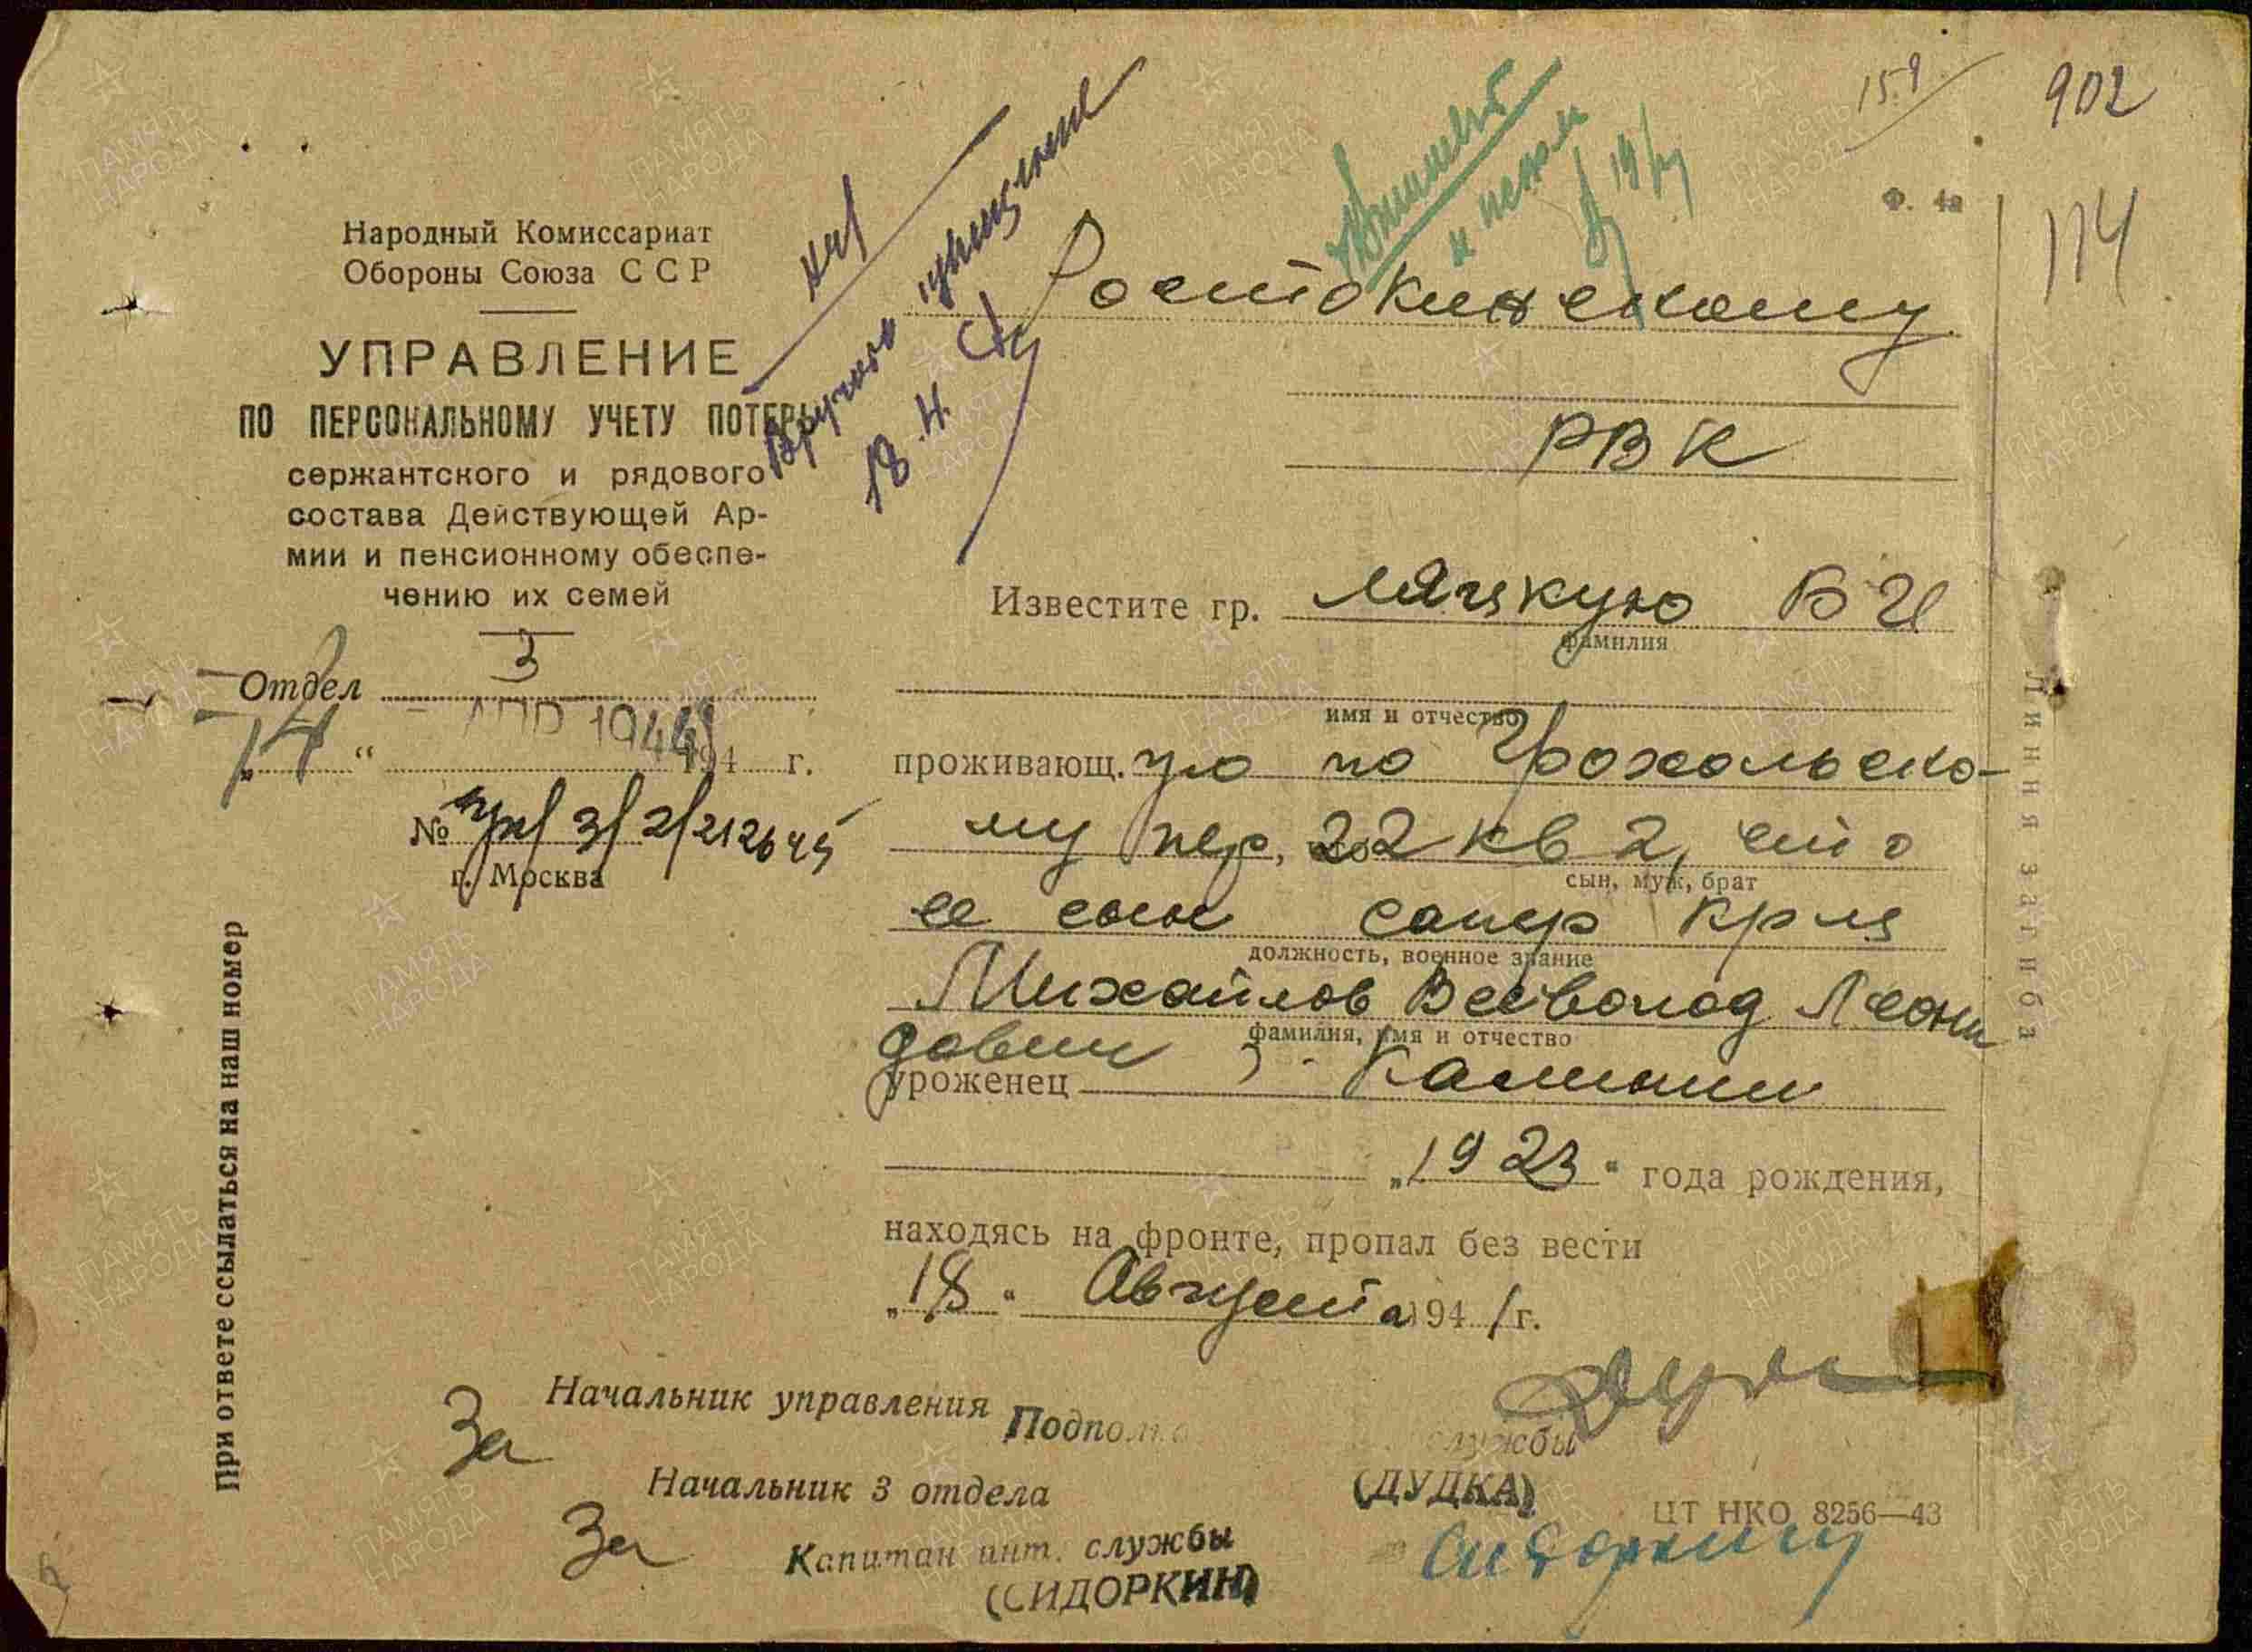 902
15.9
114
Ф. 4а
Народный Комиссариат
Обороны Союза ССР
УПРАВЛЕНИЕ
ПО ПЕРСОНАЛЬНОМУ УЧЕТУ ПОТЕРЬ
сержантского и рядового
состава Действующей Ар-
мии и пенсионному обеспе-
чению их семей
Отдел 3
"14" АПР 1944 194 г.
№ 3/2/212645
г. Москва
Вручено
18.4.
Ростокинскому
РВК
Известите гр. Ляцкую В И
фамилия
имя и отчество
проживающ. ую по Грохольско-
му пер, 22 кв 2, что
сын, муж, брат
ее сын сапер кр-ц
должность, военное звание
Михайлов Всеволод Леони
фамилия, имя и отчество
дович г. Калинин
уроженец
"1923" года рождения,
находясь на фронте, пропал без вести
"18" Августа 1941 г.
За Начальник управления Подполк
службы
(ДУДКА)
За Начальник 3 отдела
Капитан инт. службы
(СИДОРКИН)
Сидоркин
ЦТ НКО 8256—43
При ответе ссылаться на наш номер
Линия загиба
ПАМЯТЬ НАРОДА